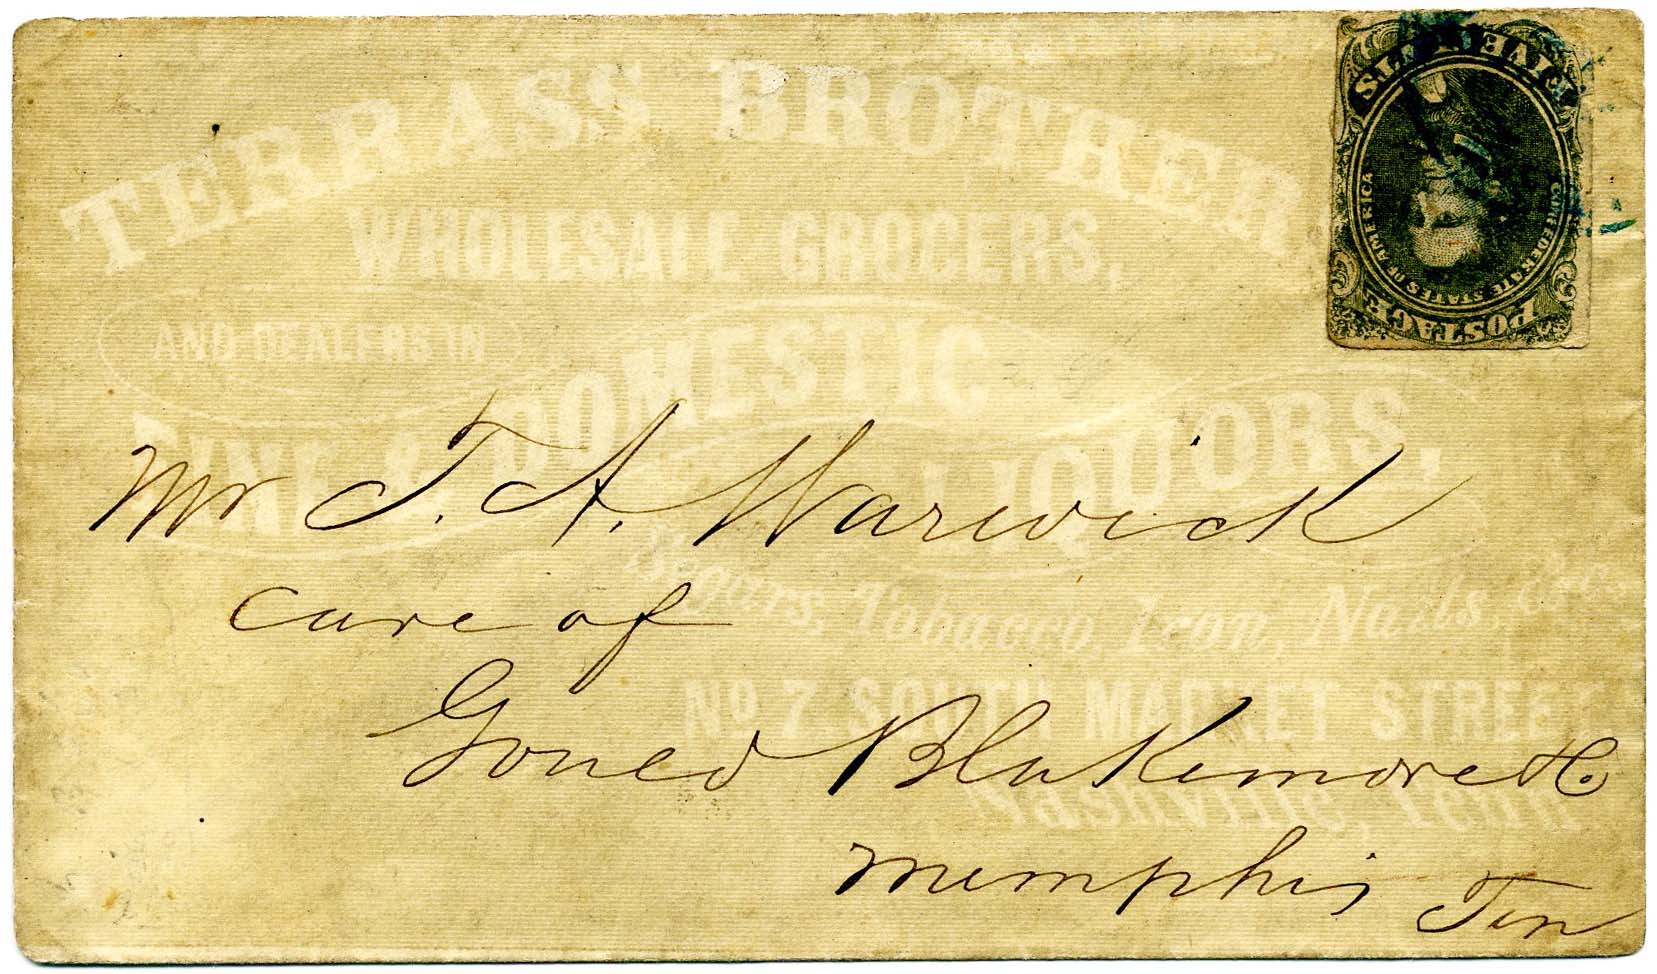 TERRASS BROTHER
WHOLESALE GROCERS,
AND DEALERS IN
FINE & DOMESTIC
LIQUORS,
Segars, Tobacco, Iron, Nails, etc.
No 7 SOUTH MARKET STREE
Nashville, Tenn
FIVE CENTS
CONFEDERATE STATES OF AMERICA
POSTAGE
Mr T. A. Warwick
Care of
Blakemore & Co
Memphis Ten